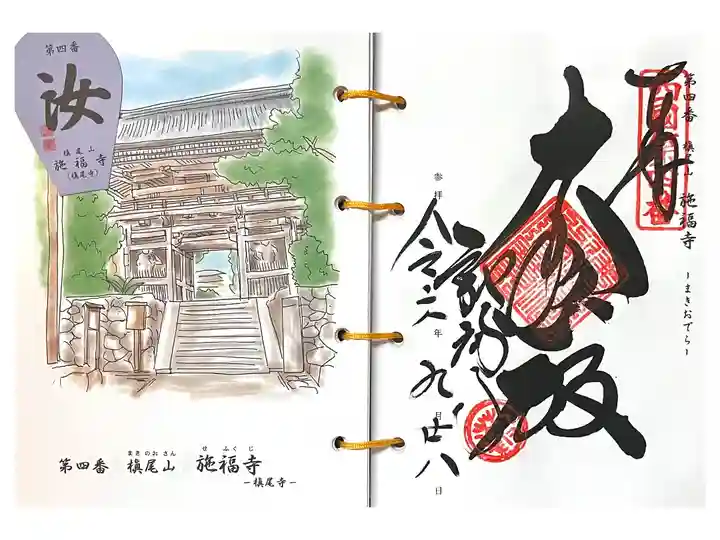 第四番
汝
槇尾山
施福寺
(槇尾寺)
まきのおさん せふくじ
第四番 槇尾山 施福寺
-槇尾寺-
第四番 槇尾山 施福寺 -まきおでら-
施福寺
参拝 年 九月廿八日